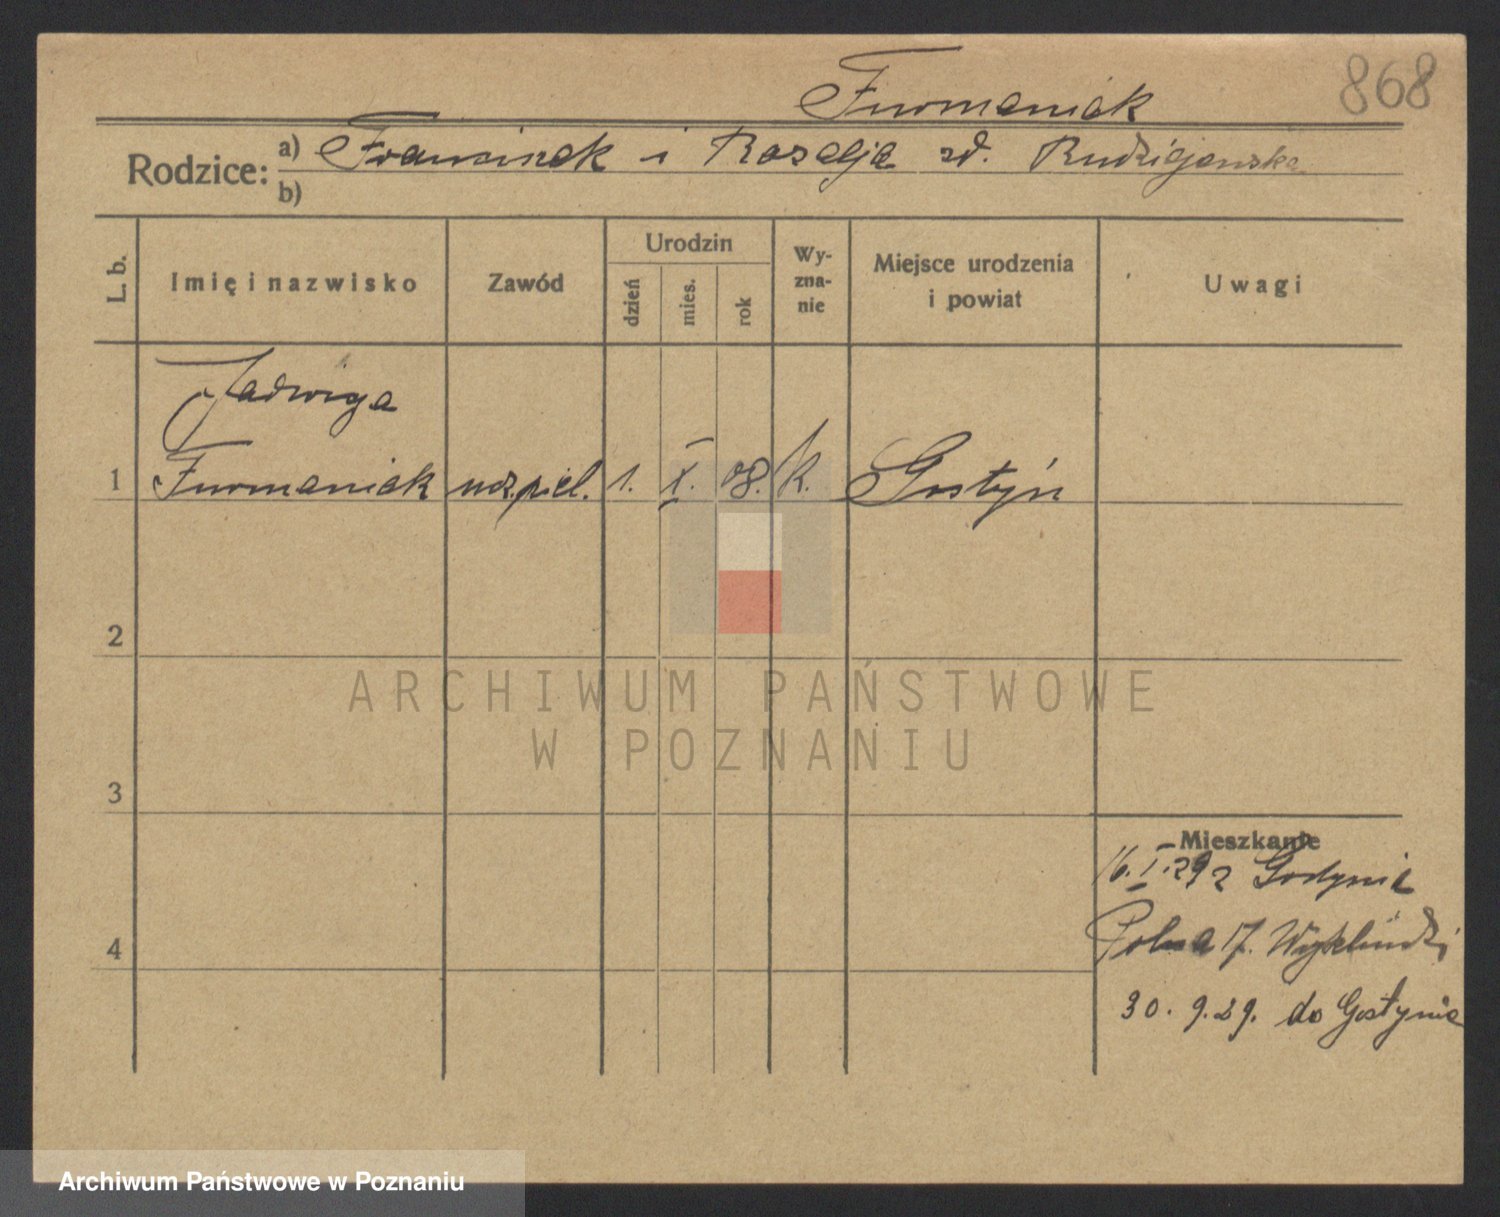 868
Furmaniak
Rodzice: a) Franciszek i Rozalja zd.
b)
L. b.
Imię i nazwisko
Zawód
Urodzin
dzień
mies.
rok
Wy-
zna-
nie
Miejsce urodzenia
i powiat
Uwagi
Jadwiga
1 Furmaniak ucz. piel. 1. X. 08. k. Gostyń
2
3
4
Mieszkanie
16. I. 29 z Gostynia
Polna 17.
30. 9. 29. do Gostynia
ARCHIWUM PAŃSTWOWE
W POZNANIU
Archiwum Państwowe w Poznaniu